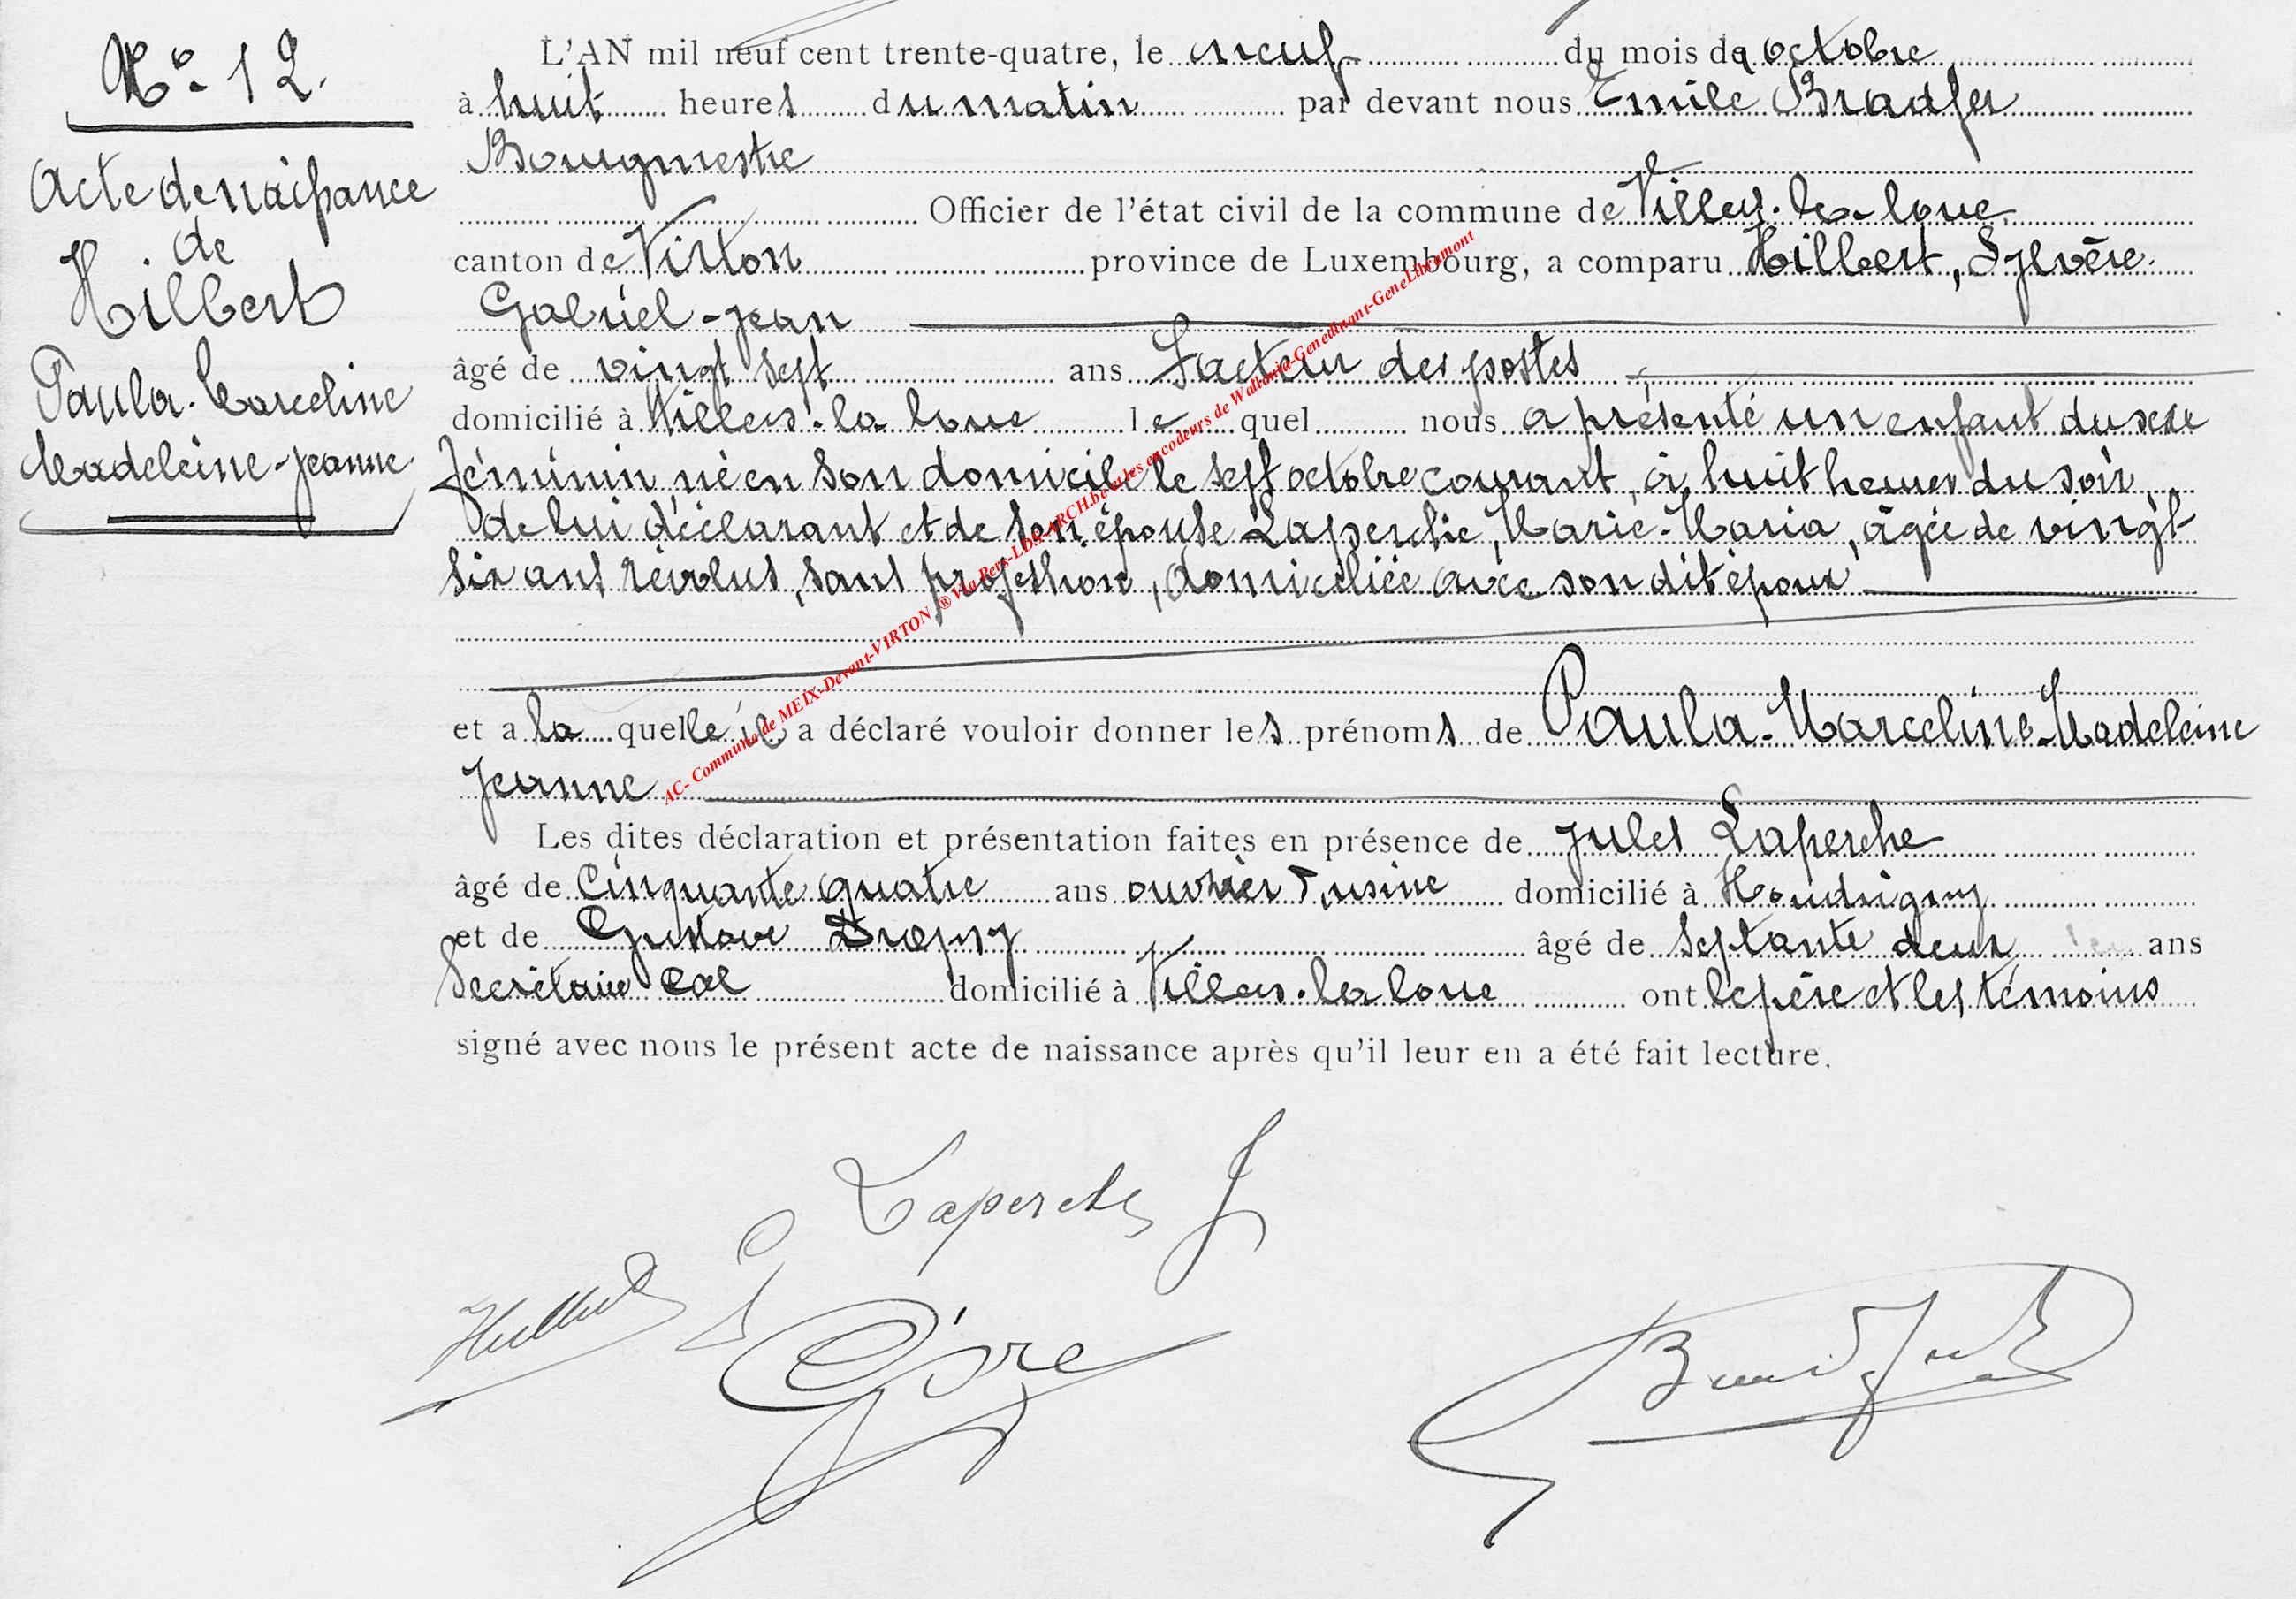 N° 12.
Acte de naissance
de
Hilbert
Paula-Marceline
Madeleine-Jeanne
L'AN mil neuf cent trente-quatre, le neuf du mois d'octobre
à huit heures du matin par devant nous Emile Bradfer
Bourgmestre
Officier de l'état civil de la commune de Villers-la-loue
canton de Virton province de Luxembourg, a comparu Hilbert, Sylvère
Gabriel-Jean
âgé de vingt sept ans Facteur des postes
domicilié à Villers-la-loue lequel nous a présenté un enfant du sexe
féminin né en son domicile le sept octobre courant, à huit heures du soir,
de lui déclarant et de son épouse Laperche, Marie-Maria, âgée de vingt-
six ans révolus, sans profession, domiciliée avec son dit époux
et a la quelle il a déclaré vouloir donner les prénoms de Paula-Marceline-Madeleine
Jeanne
Les dites déclaration et présentation faites en présence de Jules Laperche
âgé de Cinquante quatre ans ouvrier d'usine domicilié à Houdrigny
et de Gustave âgé de septante deux ans
Secrétaire Cal domicilié à Villers-la-loue ont le père et les témoins
signé avec nous le présent acte de naissance après qu'il leur en a été fait lecture.
Laperche J
Hilbert
Bradfer
AC- Commune de MEIX-Devant-VIRTON ® Via Pers-LDS-ARCH.be et les encodeurs de Wallonia-Genedinant-GeneLibramont